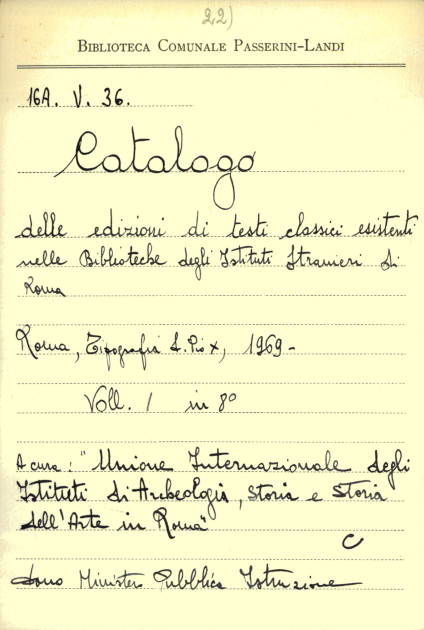 22)
BIBLIOTECA COMUNALE PASSERINI-LANDI
16A. V. 36.
Catalogo
delle edizioni di testi classici esistenti
nelle Biblioteche degli Istituti Stranieri di
Roma
Roma, Tipografia S. Pio X, 1969-
Voll. 1 in 8°
A cura: "Unione Internazionale degli
Istituti di Archeologia, Storia e Storia
dell'Arte in Roma"
C
dono Ministero Pubblica Istruzione